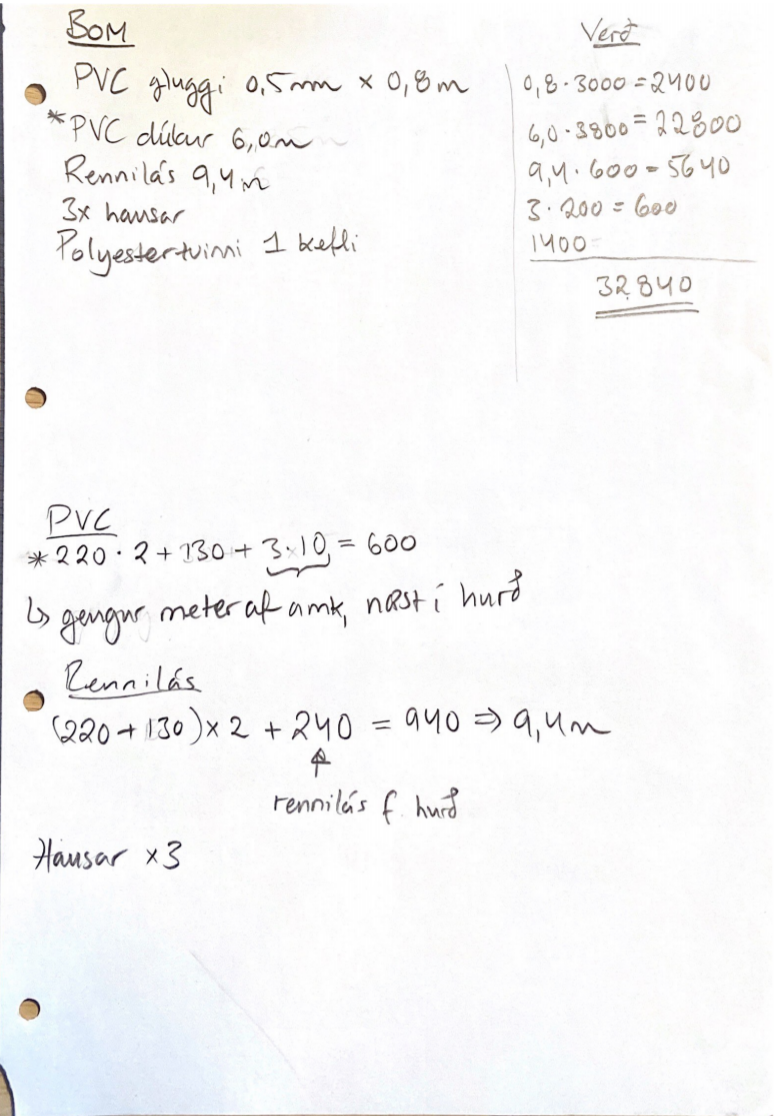 BOM
PVC gluggi 0,5mm × 0,8m
*PVC dúkur 6,0m
Rennilás 9,4m
3x hausar
Polyestertvinni 1 kefli
Verð
0,8·3000=2400
6,0·3800=22800
9,4·600=5640
3·200=600
1400
32.840
PVC
*220·2+130+3·10,=600
↳ gengur meter af amk, næst í hurð
Rennilás
(220+130)×2+240=940⇒9,4m
↑
rennilás f. hurð
Hausar ×3